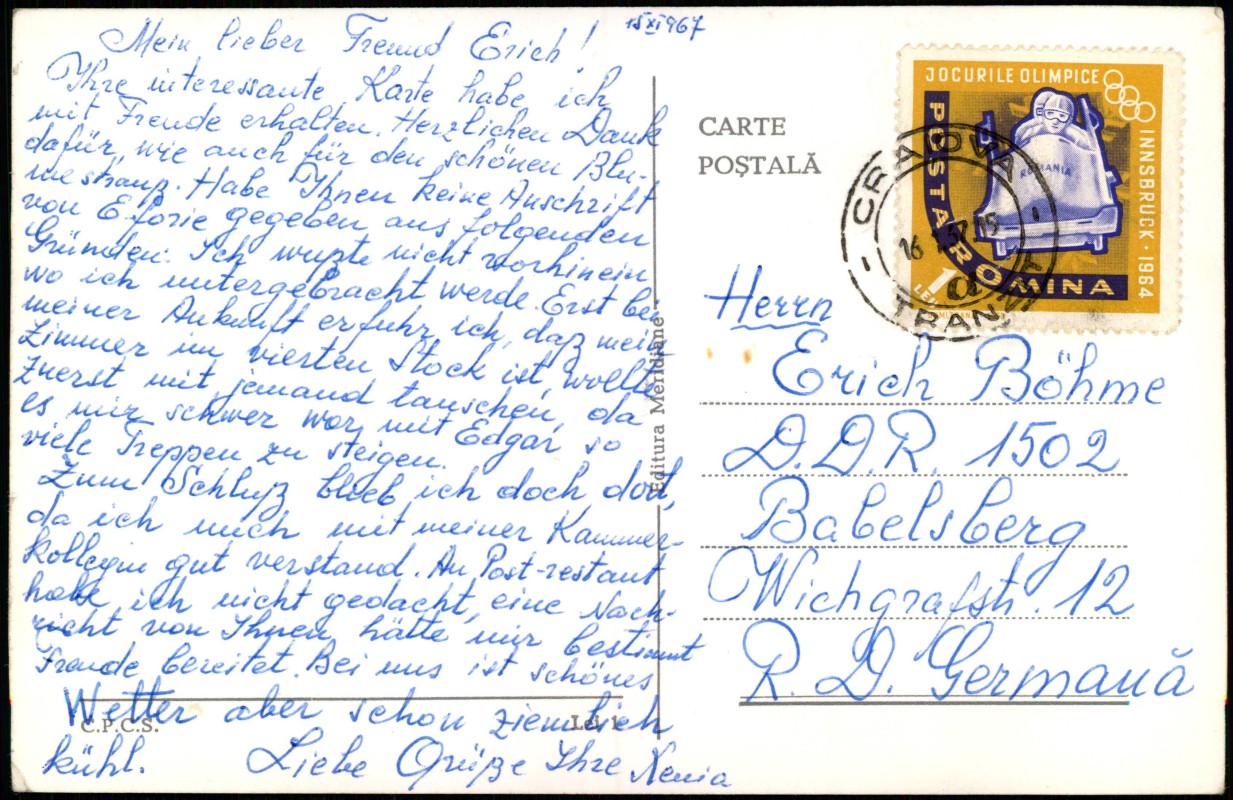 15 XI 967
Mein lieber Freund Erich!
Ihre interessante Karte habe ich
mit Freude erhalten. Herzlichen Dank
dafür, wie auch für den schönen Blu-
mestrauß. Habe Ihnen keine Anschrift
von Eforie gegeben aus folgenden
Gründen: Ich wußte nicht vorhinein
wo ich untergebracht werde. Erst bei
meiner Ankunft erfuhr ich, daß mein
Zimmer im vierten Stock ist, wollte
zuerst mit jemand tauschen, da
es mir schwer war mit Edgar so
viele Treppen zu steigen.
Zum Schluß blieb ich doch dort,
da ich mich mit meiner Kammer-
kollegin gut verstand. An Post-restant
habe ich nicht gedacht, eine Nach-
richt von Ihnen hätte mir bestimmt
Freude bereitet. Bei uns ist schönes
Wetter aber schon ziemlich
kühl. Liebe Grüße Ihre Xenia
C.P.C.S. Lei 1
Editura Meridiane
CARTE
POȘTALĂ
JOCURILE OLIMPICE
INNSBRUCK · 1964
POSTA ROMINA
ROMANIA
1
LEU
CRAIOVA
16 67 15
TRANZIT
Herrn
Erich Böhme
D.D.R. 1502
Babelsberg
Wichgrafstr. 12
R. D. Germană